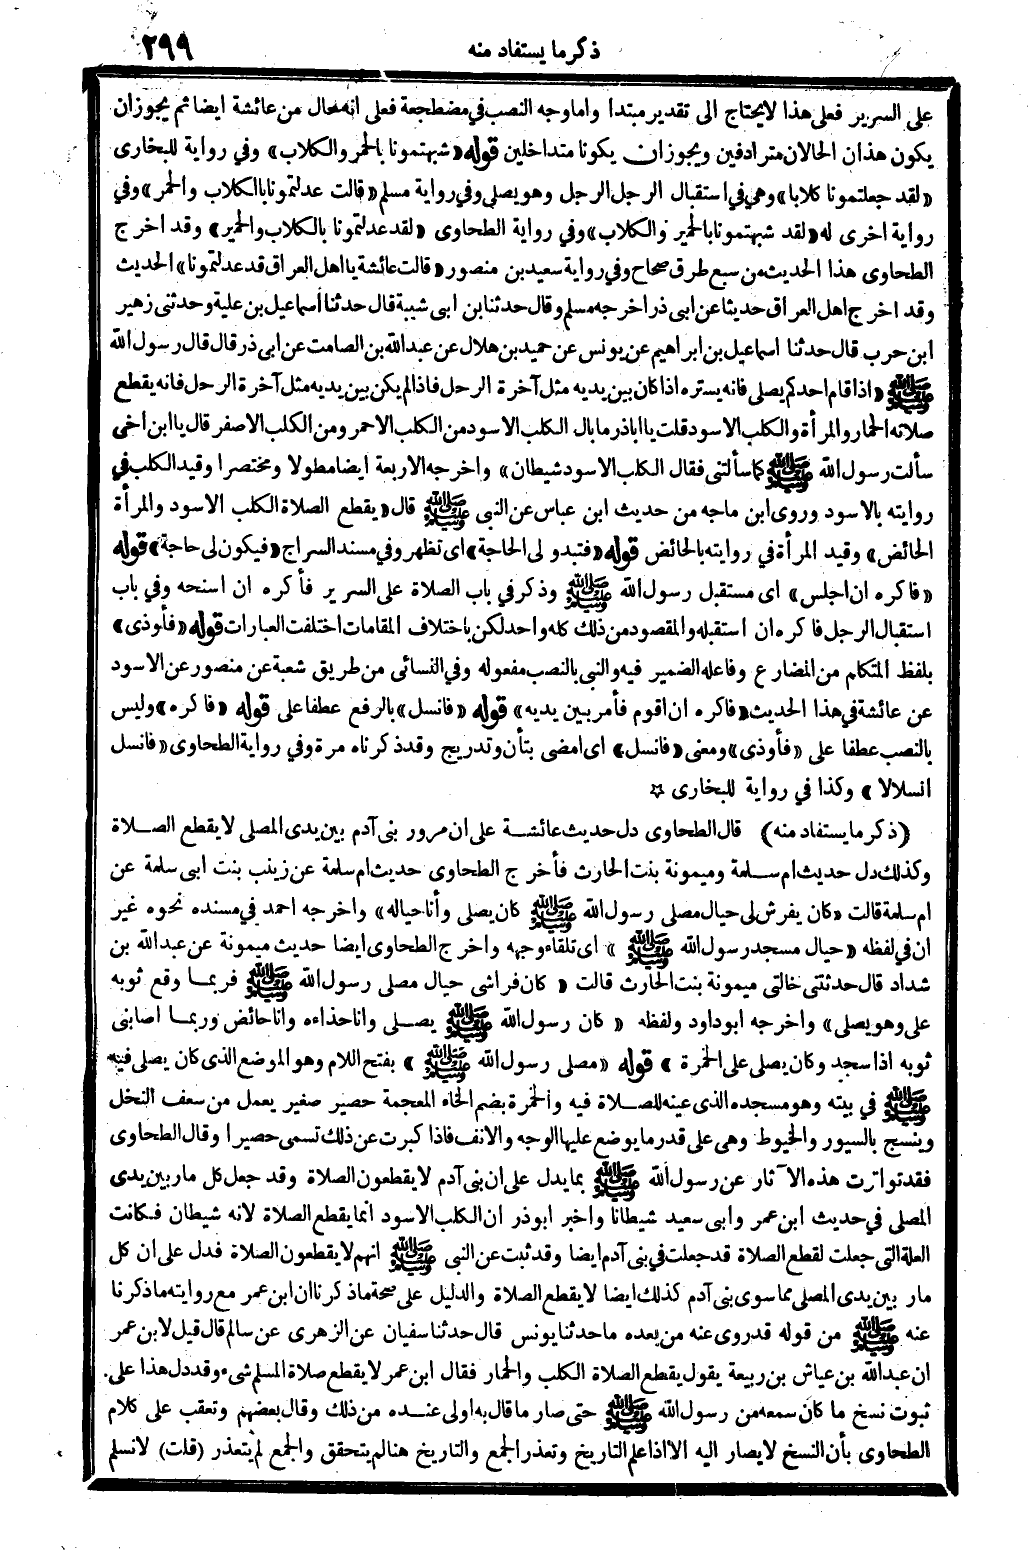 ذكر ما يستفاد منه
٢٩٩
على السرير فعلى هذا لا يحتاج الى تقدير مبتدا واما وجه النصب في مضطجعة فعلى انه حال من عائشة ايضا ثم يجوز ان
يكون هذان الحالان مترادفين ويجوز ان يكونا متداخلين قوله «شبهتمونا بالحمر والكلاب» وفي رواية للبخارى
«لقد جعلتمونا كلابا» وهي في استقبال الرجل الرجل وهو يصلى وفي رواية مسلم «قالت عدلتمونا بالكلاب والحمر» وفي
رواية اخرى له «لقد شبهتمونا بالحمير والكلاب» وفي رواية الطحاوى «لقد عدلتمونا بالكلاب والحمير» وقد اخرج
الطحاوى هذا الحديث من سبع طرق صحاح وفي رواية سعيد بن منصور «قالت عائشة يا اهل العراق قد عدلتمونا» الحديث
وقد اخرج اهل العراق حديثا عن ابى ذر اخرجه مسلم وقال حدثنا ابن ابى شيبة قال حدثنا أسماعيل بن علية وحدثنى زهير
ابن حرب قال حدثنا اسماعيل بن ابراهيم عن يونس عن حميد بن هلال عن عبدالله بن الصامت عن ابى ذر قال قال رسول الله
ﷺ «اذا قام احدكم يصلى فانه يستره اذا كان بين يديه مثل آخرة الرحل فاذا لم يكن بين يديه مثل آخرة الرحل فانه يقطع
صلاته الحمار والمرأة والكلب الاسود قلت يا اباذر ما بال الكلب الاسود من الكلب الاحمر ومن الكلب الاصفر قال يا ابن اخى
سألت رسول الله ﷺ كما سألتنى فقال الكلب الاسود شيطان» واخرجه الاربعة ايضا مطولا ومختصرا وقيد الكلب في
روايته بالاسود وروى ابن ماجه من حديث ابن عباس عن النبى ﷺ قال «يقطع الصلاة الكلب الاسود والمرأة
الحائض» وقيد المرأة في روايته بالحائض قوله «فتبدو لى الحاجة» اى تظهر وفي مسند السراج «فيكون لى حاجة» قوله
«فاكره ان اجلس» اى مستقبل رسول الله ﷺ وذكر في باب الصلاة على السرير فأكره ان اسنحه وفي باب
استقبال الرجل فاكره ان استقبله والمقصود من ذلك كله واحد لكن باختلاف المقامات اختلفت العبارات قوله «فأوذى»
بلفظ المتكلم من المضارع وفاعله الضمير فيه والنبى بالنصب مفعوله وفي النسائى من طريق شعبة عن منصور عن الاسود
عن عائشة في هذا الحديث «فاكره ان اقوم فأمر بين يديه» قوله «فانسل» بالرفع عطفا على قوله «فاكره» وليس
بالنصب عطفا على «فأوذى» ومعنى «فانسل» اى امضى بتأن وتدريج وقد ذكرناه مرة وفي رواية الطحاوى «فانسل
انسلالا» وكذا في رواية للبخارى ☆
(ذكر ما يستفاد منه) قال الطحاوى دل حديث عائشة على ان مرور بنى آدم بين يدى المصلى لا يقطع الصلاة
وكذلك دل حديث ام سلمة وميمونة بنت الحارث فأخرج الطحاوى حديث ام سلمة عن زينب بنت ابى سلمة عن
ام سلمة قالت «كان يفرش لى حيال مصلى رسول الله ﷺ كان يصلى وأنا حياله» واخرجه احمد في مسنده نحوه غير
ان في لفظه «حيال مسجد رسول الله ﷺ» اى تلقاء وجهه واخرج الطحاوى ايضا حديث ميمونة عن عبدالله بن
شداد قال حدثتنى خالتى ميمونة بنت الحارث قالت «كان فراشى حيال مصلى رسول الله ﷺ فربما وقع ثوبه
على وهو يصلى» واخرجه ابوداود ولفظه «كان رسول الله ﷺ يصلى وانا حذاءه وانا حائض وربما اصابنى
ثوبه اذا سجد وكان يصلى على الخمرة» قوله «مصلى رسول الله ﷺ» بفتح اللام وهو الموضع الذى كان يصلى فيه
ﷺ في بيته وهو مسجده الذى عينه للصلاة فيه والخمرة بضم الخاء المعجمة حصير صغير يعمل من سعف النخل
وينسج بالسيور والخيوط وهى على قدر ما يوضع عليها الوجه والانف فاذا كبرت عن ذلك تسمى حصيرا وقال الطحاوى
فقد تواترت هذه الآثار عن رسول الله ﷺ بما يدل على ان بنى آدم لا يقطعون الصلاة وقد جعل كل مار بين يدى
المصلى في حديث ابن عمر وابى سعيد شيطانا واخبر ابوذر ان الكلب الاسود انما يقطع الصلاة لانه شيطان فكانت
العلة التى جعلت لقطع الصلاة قد جعلت في بنى آدم ايضا وقد ثبت عن النبى ﷺ انهم لا يقطعون الصلاة فدل على ان كل
مار بين يدى المصلى مما سوى بنى آدم كذلك ايضا لا يقطع الصلاة والدليل على صحة ماذكرنا ان ابن عمر مع روايته ماذكرنا
عنه ﷺ من قوله قد روى عنه من بعده ما حدثنا يونس قال حدثنا سفيان عن الزهرى عن سالم قال قيل لابن عمر
ان عبدالله بن عياش بن ربيعة يقول يقطع الصلاة الكلب والحمار فقال ابن عمر لا يقطع صلاة المسلم شىء وقد دل هذا على
ثبوت نسخ ما كان سمعه من رسول الله ﷺ حتى صار ما قال به اولى عنده من ذلك وقال بعضهم وتعقب على كلام
الطحاوى بأن النسخ لا يصار اليه الا اذا علم التاريخ وتعذر الجمع والتاريخ هنا لم يتحقق والجمع لم يتعذر (قلت) لا نسلم